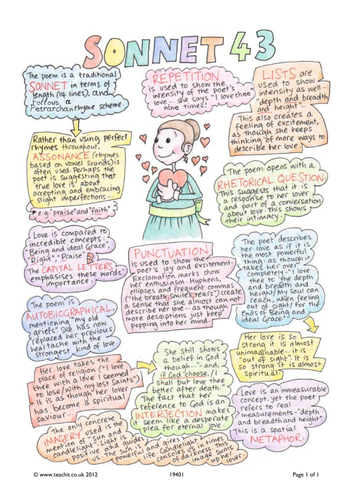 SONNET 43
The poem is a traditional
SONNET in terms of
length (14 lines), and
follows a
Petrarchan rhyme scheme.
REPETITION
is used to show the
intensity of the poet's
love - she says "I love thee"
nine times!
LISTS are
used to show
intensity as well -
"depth and breadth
and height".
This also creates a
feeling of excitement,
as though she keeps
thinking of more ways to
describe her love.
Rather than using perfect
rhymes throughout,
ASSONANCE (rhymes
based on vowel sounds) is
often used. Perhaps the
poet is suggesting that
true love is about
accepting and embracing
slight imperfections.
e.g. "praise" and "faith"
The poem opens with a
RHETORICAL QUESTION
This suggests that it is
a response to her lover
and part of a conversation
about love. This shows
their intimacy.
Love is compared to
incredible concepts:
"Being and ideal Grace",
"Right", "Praise".
The CAPITAL LETTERS
emphasises these words'
importance
PUNCTUATION
is used to show the
poet's joy and excitement.
Exclamation marks show
her enthusiasm. Hyphens,
ellipses and frequent commas
("the breath, smiles, tears") create
a sense that she almost can not
describe her love - as though
more descriptions just keep
popping into her mind
The poet describes
her love as if it is
the most powerful
thing: as though it
takes her over
completely - "I love
thee to the depth
and breadth and
height / My soul can
reach, when feeling
out of sight / For the
ends of Being and
ideal Grace".
The poem is
AUTOBIOGRAPHICAL
mentioning "my old
griefs". She has now
replaced her previous
heartache with the
strongest kind of love
Her love takes the
place of religion ("I love
thee with a love I seemed
to lose / with my lost Saints")
It is as though her lover
has become a spiritual
saviour.
She still shows
a belief in God
though... "- and,
if God choose, / I
shall but love thee
better after death."
The fact that her
reference to God is an
INTERJECTION makes
it seem like a desperate
plea for eternal love.
Her love is so
strong it is almost
unimaginable - it is
"out of sight". It is
so strong it is almost
spiritual!
Love is an immeasurable
concept, yet the poet
refers to real
measurements - "depth
and breadth and height".
This is a spatial
METAPHOR.
The only concrete
IMAGERY used is the
mention of "sun and
candlelight".
© www.teachit.co.uk 2012
19401
Page 1 of 1